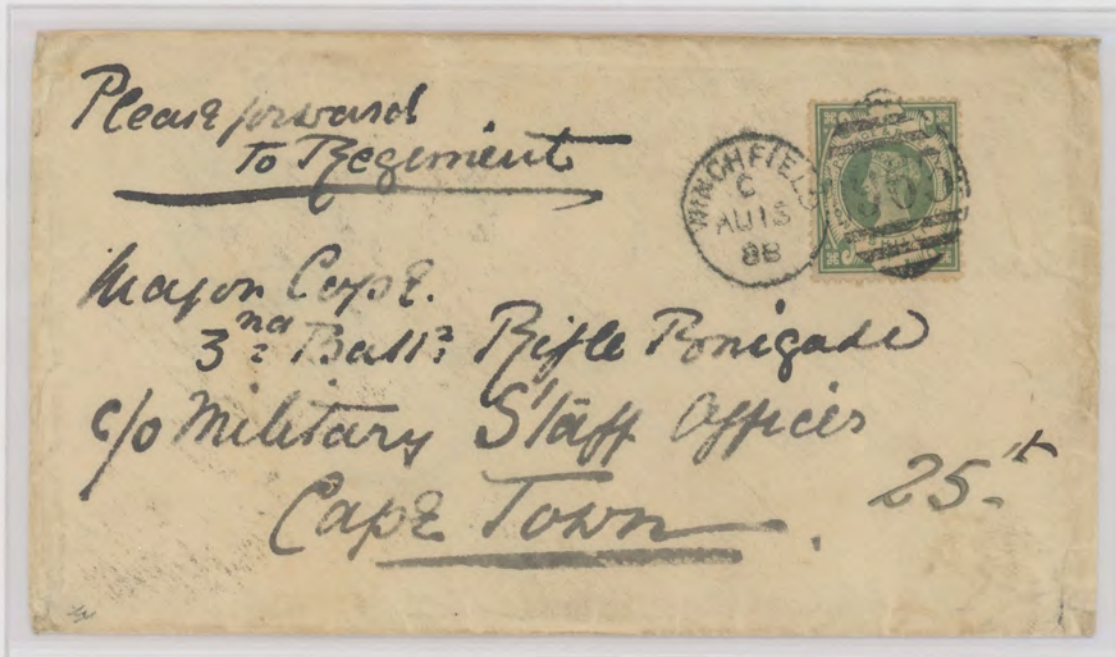 Please forward
To Regiment
WINCHFIELD
C
AU 15
88
Major Cope.
3rd Battn Rifle Brigade
c/o Military Staff Officer
Cape Town
25th